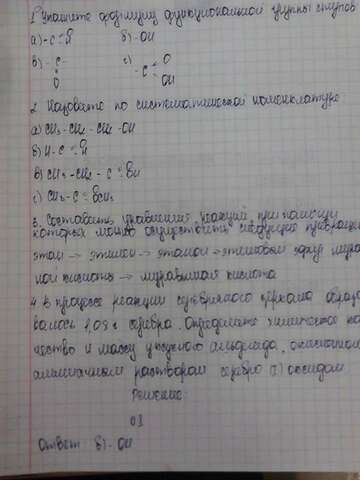 1. Укажите формулу функциональной группы спиртов
а) - C = O H б) - OH
в) - C г) O
O - C
OH
2. Назовите по систематической номенклатуре
а) CH3 - CH2 - CH2 - OH
б) H - C
в) CH3 - CH2 - C OH
г) CH3 - C
3. Составить уравнения реакций, при помощи
которых можно осуществить следующие превращения
этан → этилен → этанол → этиловый эфир мура
ной кислоты → муравьиная кислота
4. В процессе реакции серебряного зеркала образо
валось 1,08 г серебра. Определите химическое ко
чество и массу уксусного альдегида, окисленного
аммиачным раствором серебра (I) оксидом.
Решение:
Ответ б) - OH